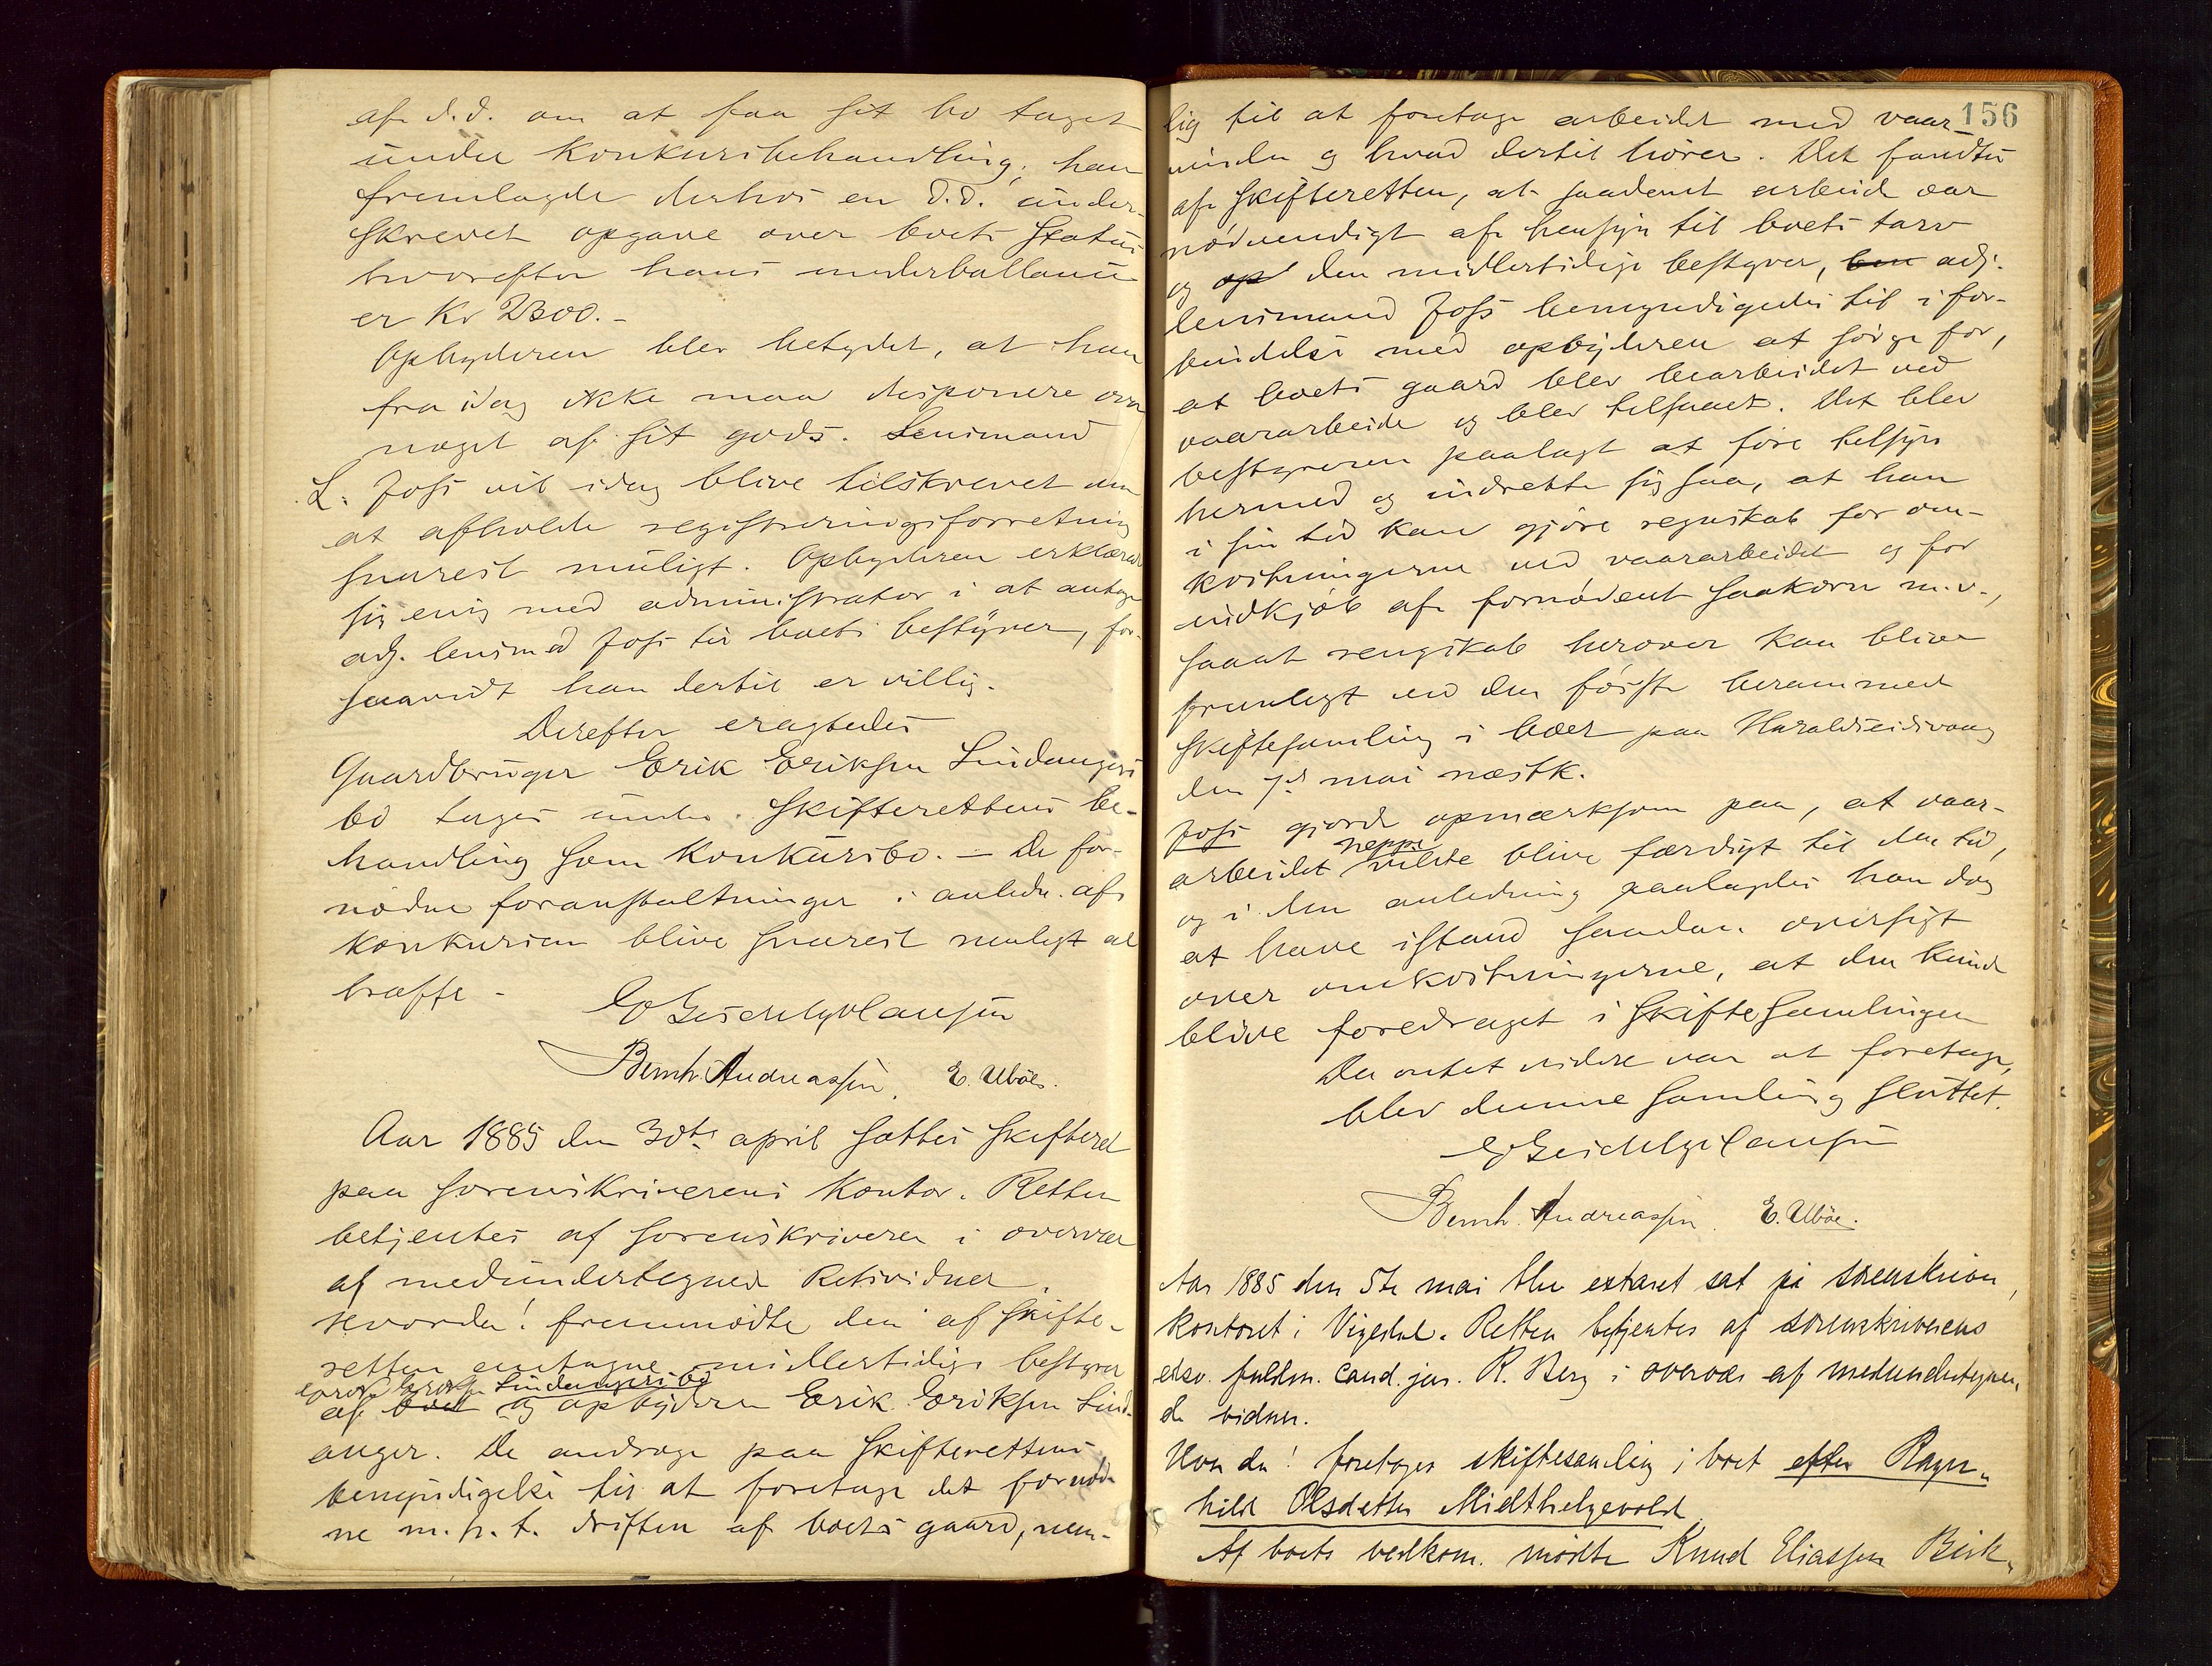 af d.d. om at faa sit bo taget
under Konkursbehandling; han
fremlagde derhos en d.d. under-
skrevet opgave over boets status
hvorefter hans underballance
er Kr 2300.-
Opbyderen blev betydet, at han
fra idag ikke maa disponere over
noget af sit gods. Lensmand
L. Joss vil idag blive tilskrevet om
at afholde registreringsforretning
snarest muligt. Opbyderen erklærede
sig enig med administrator i at antage
adj. lensmd Joss til boets bestyrer, for-
saavidt han dertil er villig.
Derefter eragtedes
Gaardbruger Erik Eriksen Lindangers
bo tages under skifterettens be-
handling som Konkursbo. – De for-
nødne foranstaltninger i anledn. af
konkursen blive snarest muligt at
træffe –
Bernh. Andreassen. E. Ubøe.
Aar 1885 den 30te april sattes skifteret
paa sorenskriverens Kontor. Retten
betjentes af sorenskriveren i overvær
af medundertegned Retsvidner.
Hvorda! fremmødte den af skifte-
retten antagne midlertidige bestyrer
Erik Eriksen Lindangers bo
af boet og opbyderen Erik Eriksen Lind-
anger. De androge paa skifterettens
bemyndigelse til at foretage det fornød-
ne m.h.t. driften af boets gaard, nem-
156
lig til at foretage arbeidet med vaar-
vinden og hvad dertil hører. Det fandtes
af skifteretten, at saadant arbeide var
nødvendigt af hensyn til boets tarv
og op den midlertidige bestyrer, ben adj.
lensmand Joss bemyndigedes til i for-
bindelse med opbyderen at sørge for,
at boets gaard blev bearbeidet ved
vaararbeide og blev tilsaaet. Det blev
bestyreren paalagt at føre tilsyn
hermed og indrette sig saa, at han
i sin tid kan gjøre regnskab for om-
kostningerne ved vaararbeidet og for
indkjøb af fornødent saakorn m.v.,
saant regnskab herover kan blive
fremlagt ved den første berammed
skiftesamling i boet paa Haraldseidsvaag
den 7de mai næstk.
Joss gjorde opmærksom paa, at vaar-
arbeidet neppe vilde blive færdigt til den tid,
og i den anledning paalagdes han dog
at have istand saadan oversigt
over omkostningerne, at den kunde
blive foredraget i skiftesamlingen
Da intet videre var at foretage,
blev denne samling sluttet.
Bernh. Andreassen. E. Ubøe.
Aar 1885 den 5te mai blev extraret sat på sorenskriver
kontoret i Vigedal. Retten betjentes af sorenskriverens
edsv. fuldm. cand. jur. R. Berg i overvær af medundertegne-
de vidner.
Hvor da! foretoges skiftesamling i boet efter Ragn-
hild Olsdatter Midthelgevold
Af boets vedkom. mødte Knud Eliassen Birk-